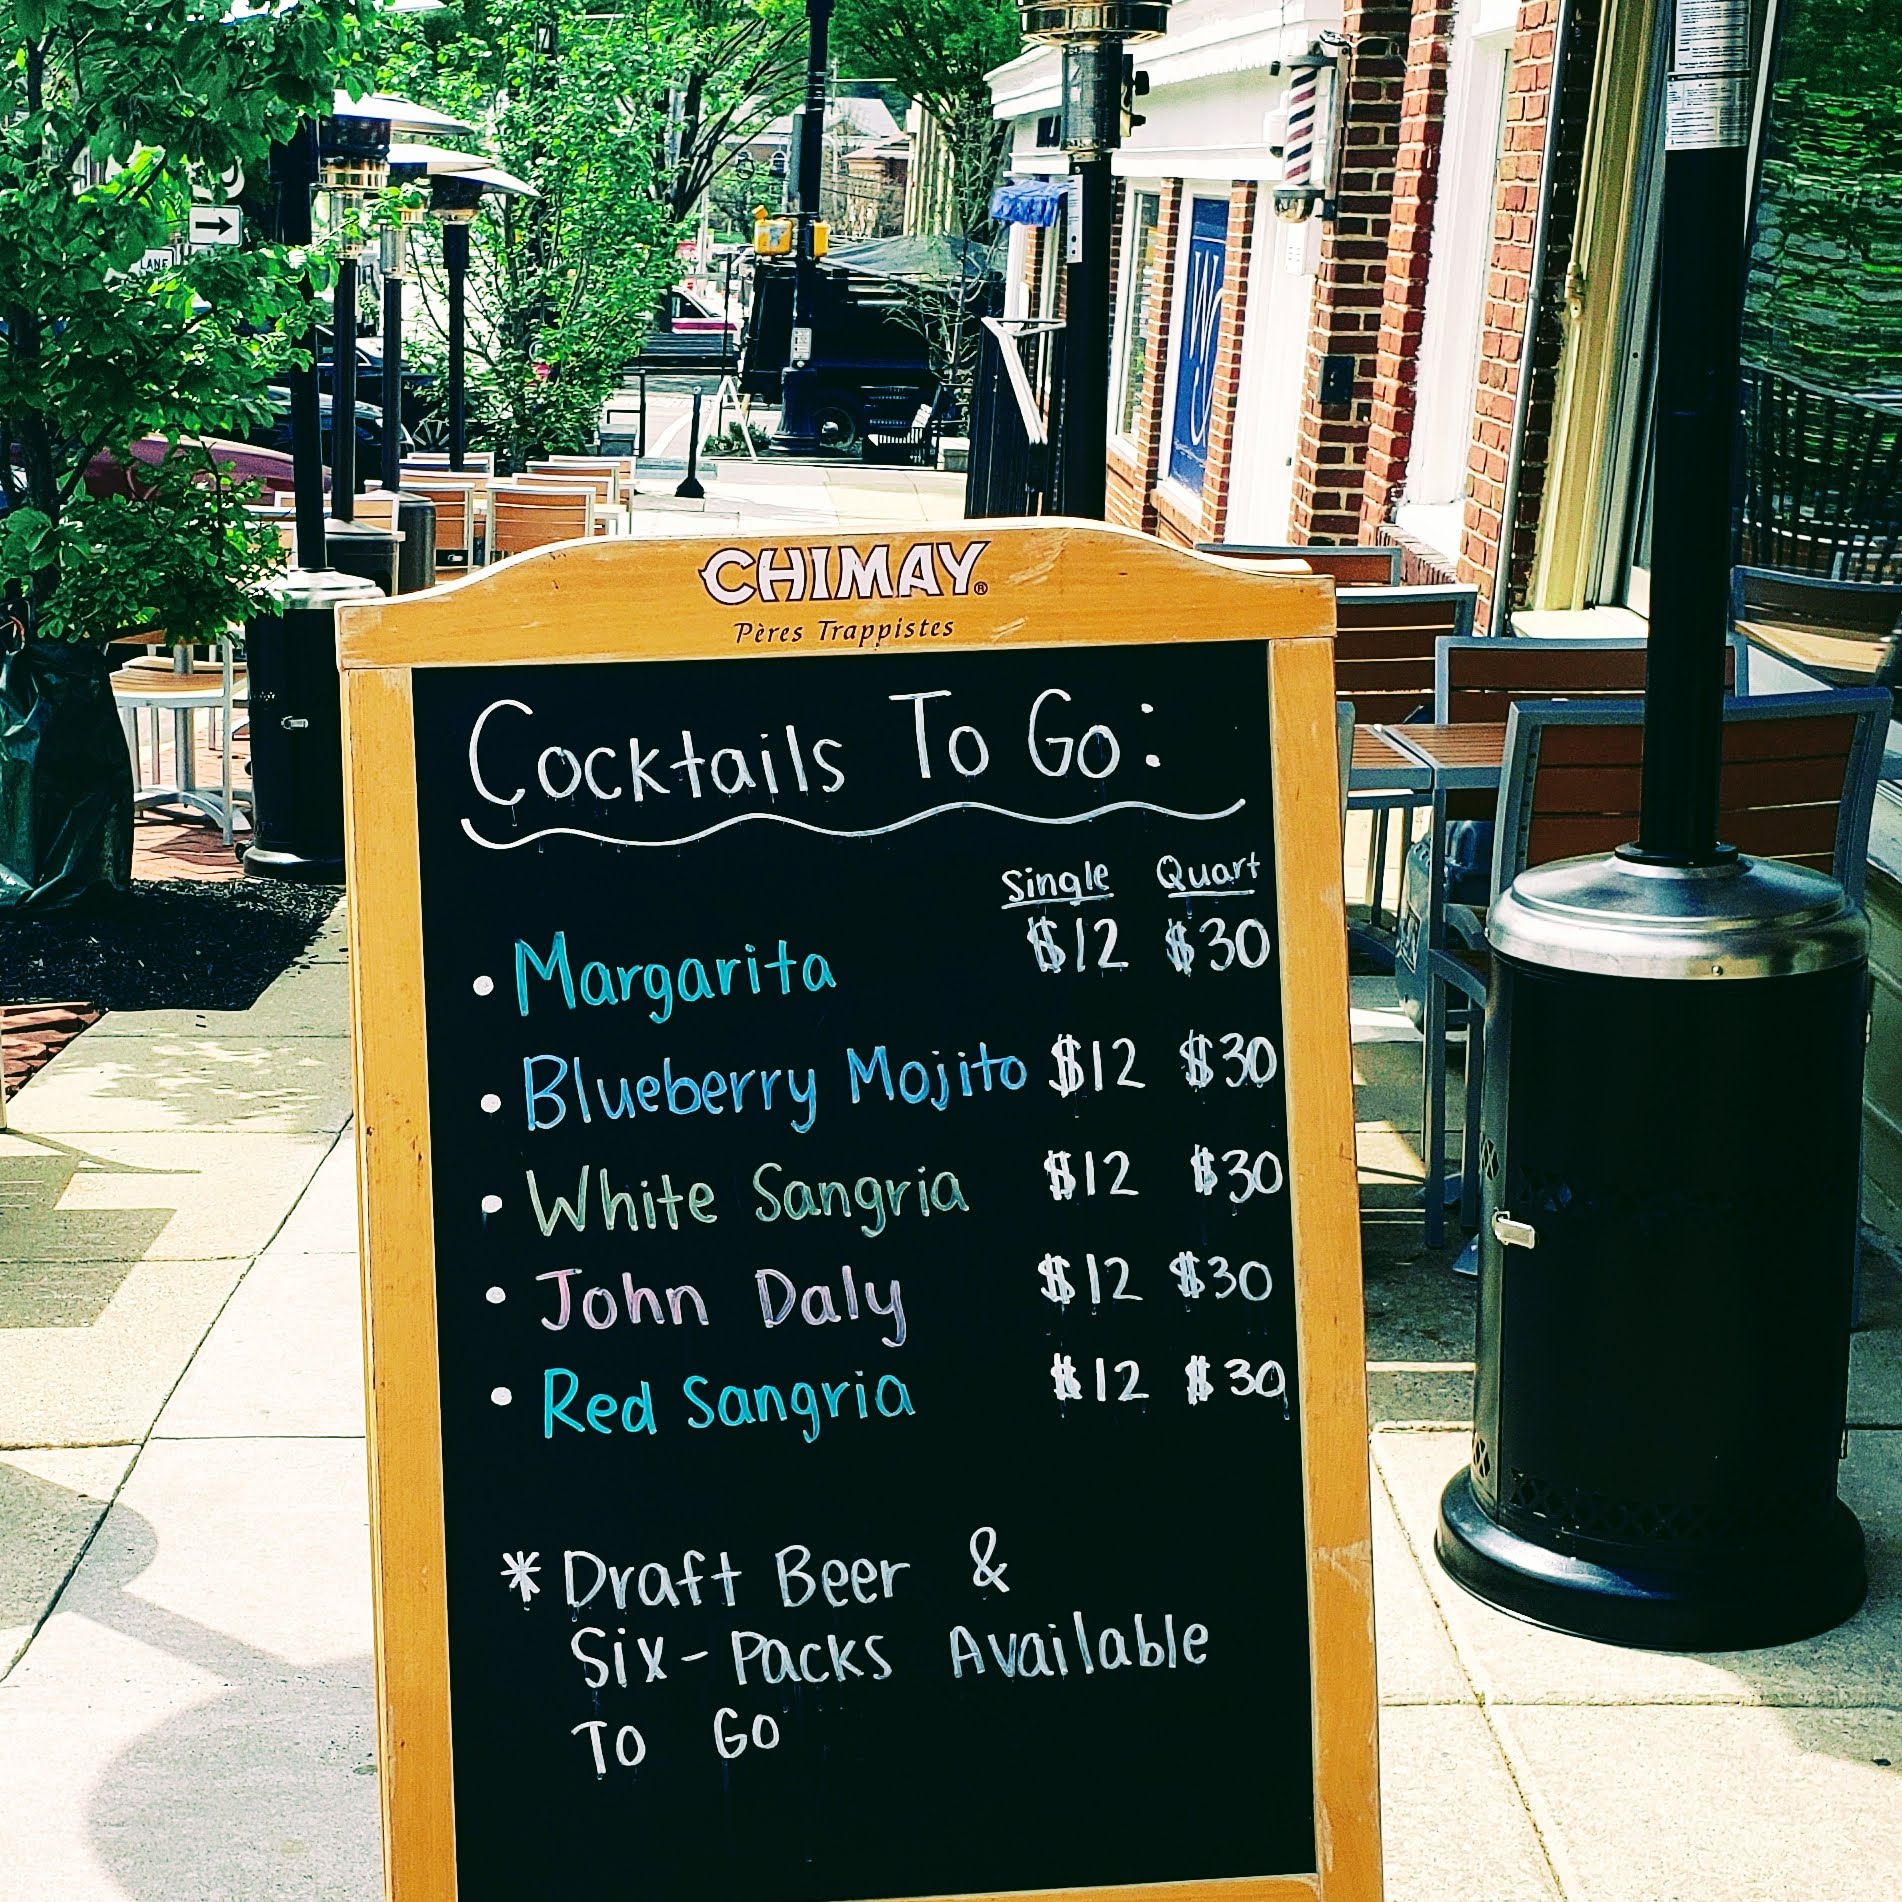 LANE
W
CHIMAY®
Pères Trappistes
Cocktails To Go:
Single Quart
• Margarita $12 $30
• Blueberry Mojito $12 $30
• White Sangria $12 $30
• John Daly $12 $30
• Red Sangria $12 $30
*Draft Beer &
Six-Packs Available
To Go